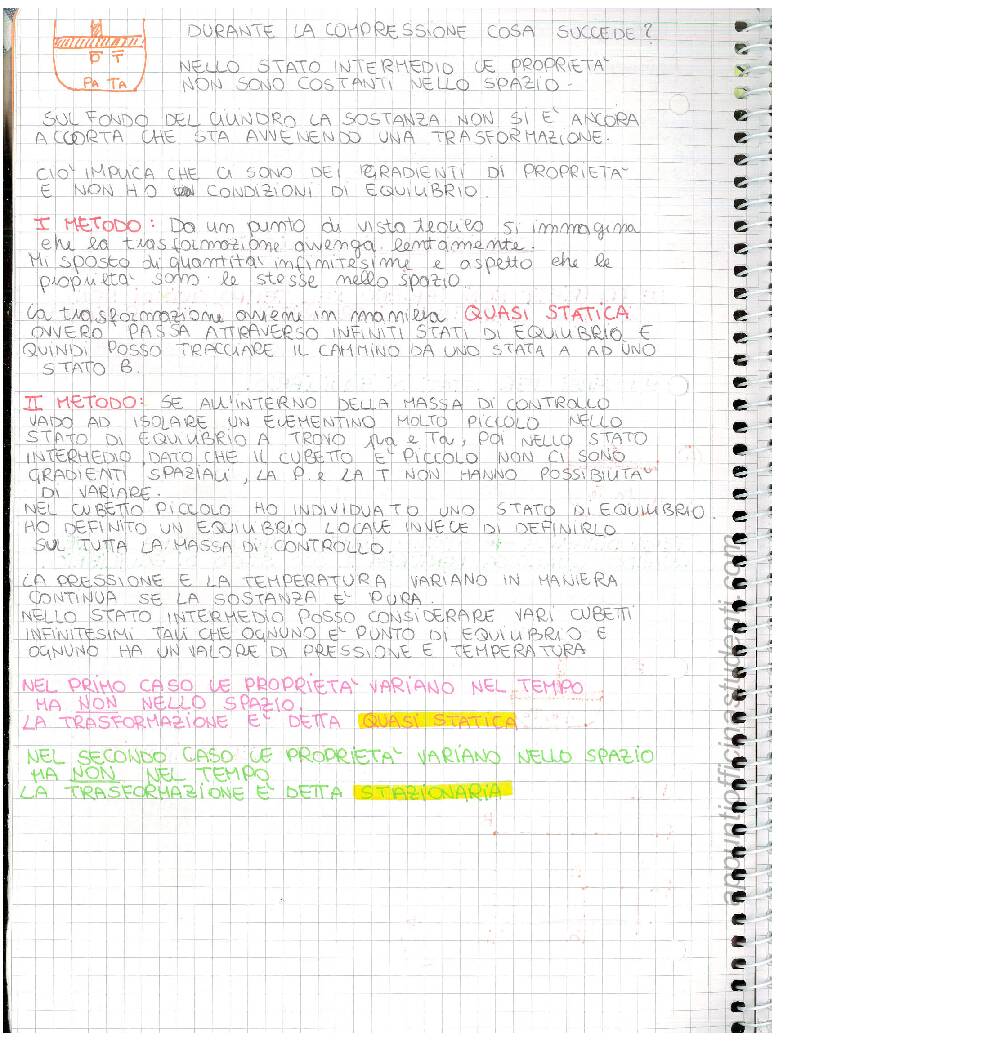 DURANTE LA COMPRESSIONE COSA SUCCEDE?
P T
PA TA
NELLO STATO INTERMEDIO LE PROPRIETA'
NON SONO COSTANTI NELLO SPAZIO.
SUL FONDO DEL CILINDRO LA SOSTANZA NON SI E' ANCORA
ACCORTA CHE STA AVVENENDO UNA TRASFORMAZIONE.
CIO' IMPLICA CHE CI SONO DEI GRADIENTI DI PROPRIETA'
E NON HO CONDIZIONI DI EQUILIBRIO.
I METODO: Da un punto di vista teorico si immagina
che la trasformazione avvenga lentamente.
Mi sposto di quantita' infinitesime e aspetto che le
proprieta' sono le stesse nello spazio.
La trasformazione avviene in maniera QUASI STATICA
OVVERO PASSA ATTRAVERSO INFINITI STATI DI EQUILIBRIO E
QUINDI POSSO TRACCIARE IL CAMMINO DA UNO STATA A AD UNO
STATO B.
II METODO: SE ALL'INTERNO DELLA MASSA DI CONTROLLO
VADO AD ISOLARE UN ELEMENTINO MOLTO PICCOLO NELLO
STATO DI EQUILIBRIO A TROVO pa e Ta, POI NELLO STATO
INTERMEDIO, DATO CHE IL CUBETTO E' PICCOLO NON CI SONO
GRADIENTI SPAZIALI, LA P e LA T NON HANNO POSSIBILITA'
DI VARIARE.
NEL CUBETTO PICCOLO HO INDIVIDUATO UNO STATO DI EQUILIBRIO.
HO DEFINITO UN EQUILIBRIO LOCALE INVECE DI DEFINIRLO
SUL TUTTA LA MASSA DI CONTROLLO.
LA PRESSIONE E LA TEMPERATURA VARIANO IN MANIERA
CONTINUA SE LA SOSTANZA E' PURA.
NELLO STATO INTERMEDIO POSSO CONSIDERARE VARI CUBETTI
INFINITESIMI TALI CHE OGNUNO E' PUNTO DI EQUILIBRIO E
OGNUNO HA UN VALORE DI PRESSIONE E TEMPERATURA
NEL PRIMO CASO LE PROPRIETA' VARIANO NEL TEMPO
MA NON NELLO SPAZIO.
LA TRASFORMAZIONE E' DETTA QUASI STATICA
NEL SECONDO CASO LE PROPRIETA' VARIANO NELLO SPAZIO
MA NON NEL TEMPO
LA TRASFORMAZIONE E' DETTA STAZIONARIA
appuntiofficinastudenti.com